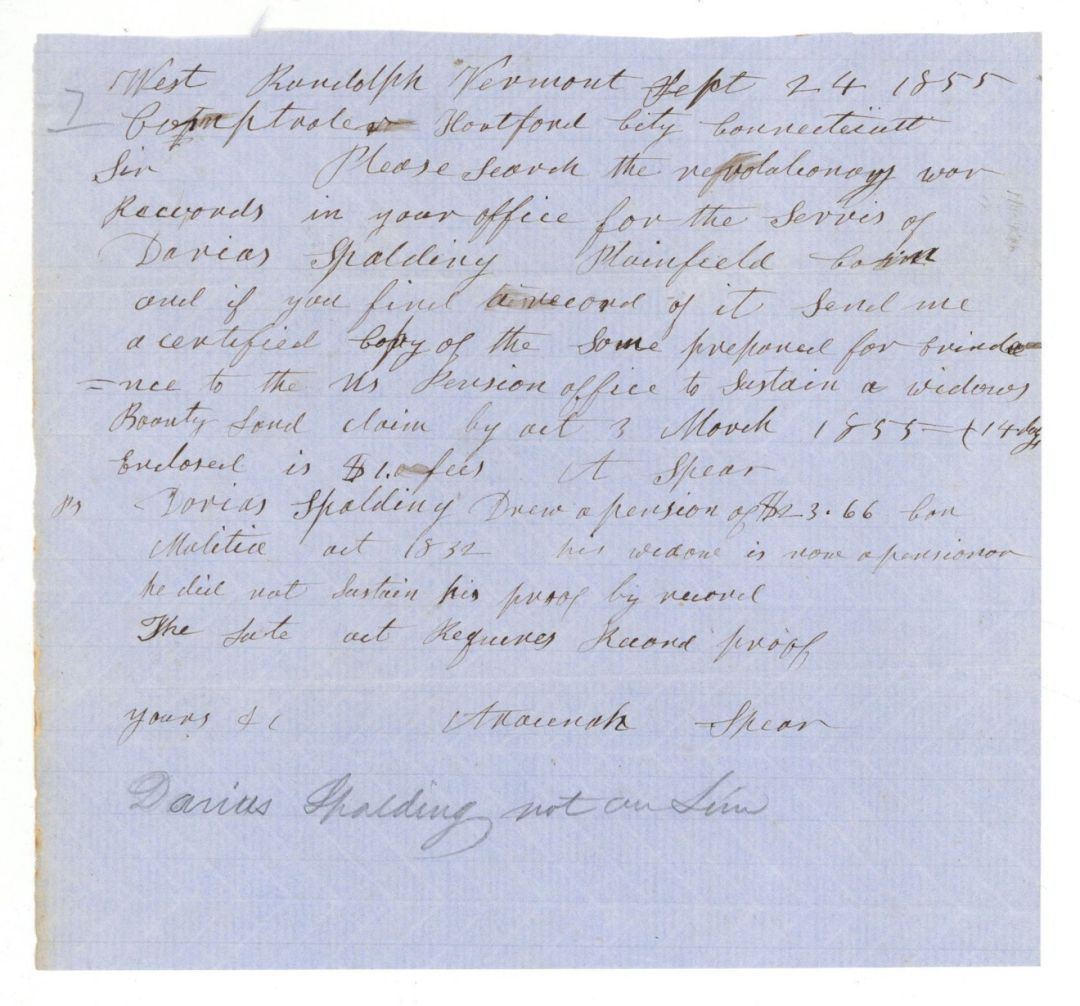 West Randolph Vermont Sept 24 1855
7
Comptroler Hartford City Connecticutt
Sir Please Search the revolutionary war
Reccords in your office for the Servis of
Darias Spalding Plainfield Conn
and if you find a record of it Send me
a certified Copy of the Same prepared for Evinde
=nce to the US Pension office to Sustain a widows
Bounty Land claim by act 3 March 1855 = (14 day
Enclosed is $1.0 fees A Spear
Ps Darias Spalding Drew a pension of $23.66 Con
Malitia act 1832 his widow is now a pensionor
he did not Sustain his proof by record
The late act Requires Record proof
yours &c Araunah Spear
Darius Spalding not on